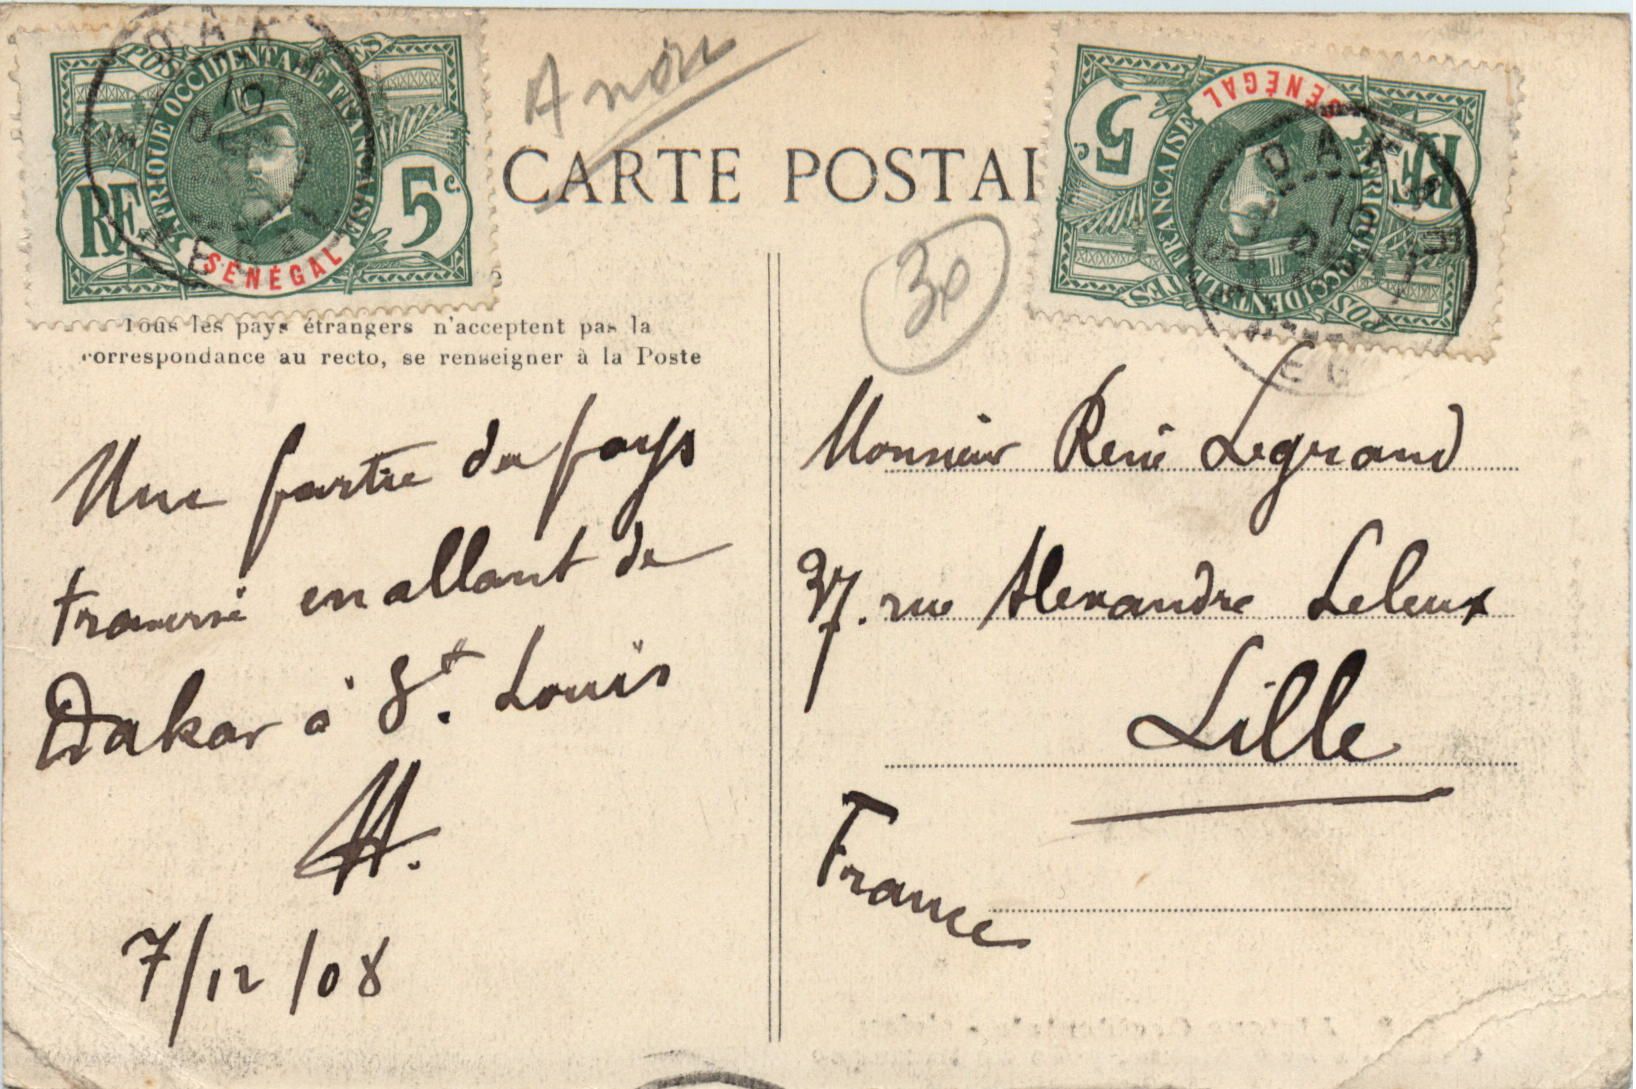 POSTES
AFRIQUE OCCIDENTALE FRANÇAISE
RF
5c.
SÉNÉGAL
DAKAR
A non
CARTE POSTAL
30
POSTES
AFRIQUE OCCIDENTALE FRANÇAISE
RF
5c.
SÉNÉGAL
DAKAR
Tous les pays étrangers n'acceptent pas la
correspondance au recto, se renseigner à la Poste
Une partie du pays
traversé en allant de
Dakar à St. Louis
7/12/08
Monsieur René Legrand
37. rue Alexandre Leleux
Lille
France